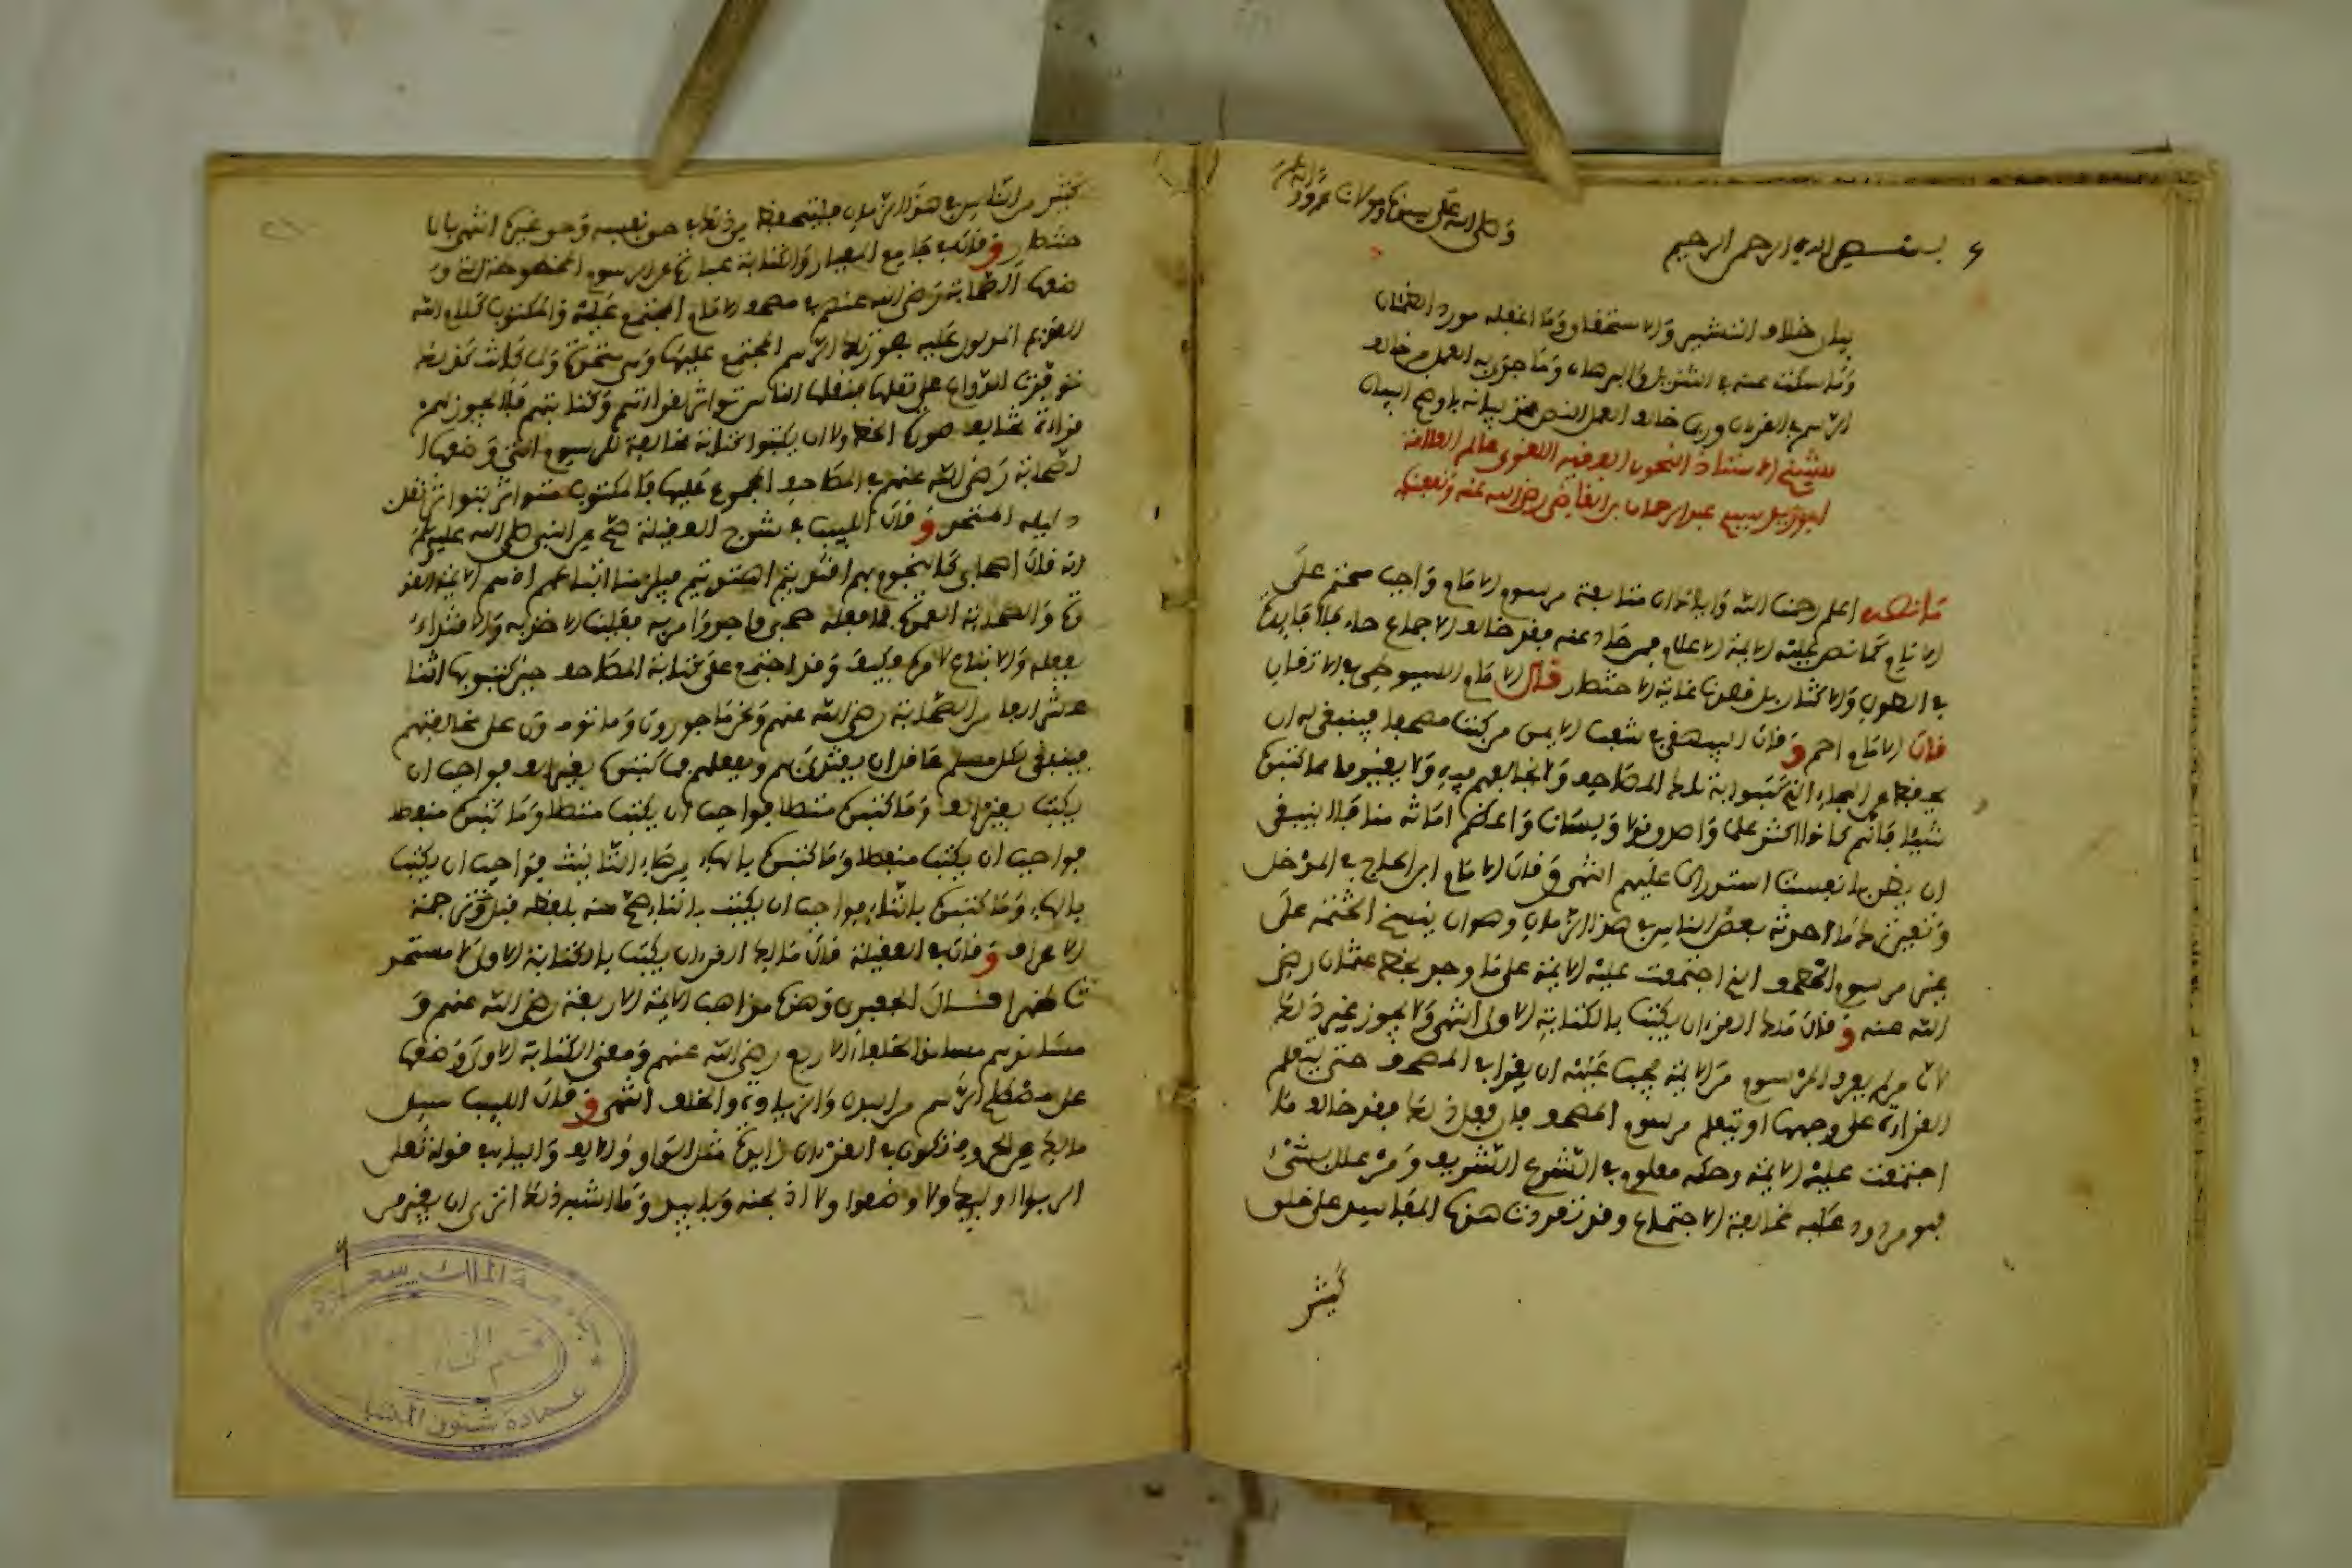 بسم الله الرحمن الرحيم
وصلى الله على سيدنا ومولانا محمد وآله
بيان خلاف التشهير والاستحسان وما اغفله مورد الظمان
وما سكت عنه في التنزيل والبرهان وما جرى به العمل من خالف
الرسم في القرءان وربما خالف العمل النص فخذ بيانه باوضح البيان
للشيخ الاستاذ النحوي الفقيه اللغوي عالم العلامة
ابو زيد سيدي عبد الرحمان بن القاضي رضي الله عنه ونفعنا به
ما نصه اعلم رحمنا الله واياك ان متابعة مرسوم الامام واجب محتم على
الانام كما نص عليه الايمة الاعلام فمن حاد عنه فقد خالف الاجماع
في الطول والاكثار بل قصدنا غاية الاختصار قال الامام السيوطي في الاتقان
قال الامام احمد وقال البيهقي في شعب الايمان من كتب مصحفا فينبغي له ان
يحافظ على الهجاء التي كتبوا به تلك المصاحف ولا يخالفهم فيه ولا يغير مما كتبوه
شيئا فانهم كانوا اكثر علما واصدق قلبا ولسانا واعظم امانة منا فلا ينبغي
ان يظن بانفسنا استدراكا عليهم انتهى وقال الامام ابن الحاج في المدخل
ويتعين ترك ما احدثه بعض الناس في هذا الزمان وهو ان ينسخ الختمة على
غير مرسوم المصحف الذي اجتمعت عليه الايمة على ما وجد بخط عثمان رضي
الله عنه وقال مالك القرءان يكتب بالكتابة الاولى انتهى ولا يجوز غير ذلك
لان من لم يعرف المرسوم من الايمة يجب عليه ان يقرا في المصحف حتى يتعلم
القراءة على وجهها او يتعلم مرسوم المصحف فان فعل ذلك فقد خالف ما
اجتمعت عليه الايمة وحكمه معلوم في الشرع الشريف ومن علل بشيء
فهو مردود عليه لمخالفة الاجماع وقد تعدت هذه المفاسد على خلق
كثير
كثير من الناس في هذا الزمان فليتحفظ من ذلك في حق نفسه وحق غيره انتهى بالا
ختصار وقال في جامع المعيار والكتابة عبارة عن الرسوم المخصوصة التي و
ضعها الصحابة رضي الله عنهم في مصحف الامام المجتمع عليه والمكتوب كلام الله
القديم المدلول عليه بهذه الرسم المجتمع عليها
توفرت الدواعي على نقلها فنقلها الناس تواترا لقراءتهم وكتابتهم فلا يجوز لهم
قراءة تخالف صورة الخط ولا ان يكتبوا كتابة مخالفة للرسوم التي وضعها ا
لصحابة رضي الله عنهم في المصاحف المجموع عليها فالمكتوب متواتر بتواتر نقل
وقال اللبيب في شرح العقيلة صح عن النبي صلى الله عليه وسلم
انه قال اصحابي كالنجوم بهم اقتديتم اهتديتم
والصحابة العمدة فما فعله صحابي واحد وامر به فعلينا الاخذ به والاقتداء
بفعله والاتباع لامره فكيف وقد اجتمع على كتابة المصاحف حين كتبوها اثنا
عشر الفا من الصحابة رضي الله عنهم ونحن ماجورون وماثومون على مخالفتهم
فينبغي لكل مسلم عاقل ان يقتدي بهم وبفعلهم فما كتبوه بغير الف فواجب ان
يكتب بغير الف وما كتبوه متصلا فواجب ان يكتب متصلا وما كتبوه منفصلا
فواجب ان يكتب منفصلا وما كتبوه بالهاء من هاء التانيث فواجب ان يكتب
بالهاء وما كتبوه بالتاء فواجب ان يكتب بالتاء صح منه بلفظه قبل ترجمة
الاعراف وقال في العقيلة قال مالك القرءان يكتب بالكتابة الاولى لا مستحد
ثا سطرا قال الجعبري وهذا مذاهب الايمة الاربعة رضي الله عنهم و
مستندهم مستند الخلفاء الاربع رضي الله عنهم ومعنى الكتابة الاولى وضعها
على مصطلح الرسم من البدل والزيادة والحذف انتهى وقال اللبيب سئل
مالك عن الحروف تكون في القرءان زايدة مثل الواو والالف والياء في قوله تعلى
الربوا ولا اوضعوا ولا اذبحنه وبابيد وما اشبه ذلك اترى ان يغير من
جامعة الملك سعود
عمادة شئون المكتبات